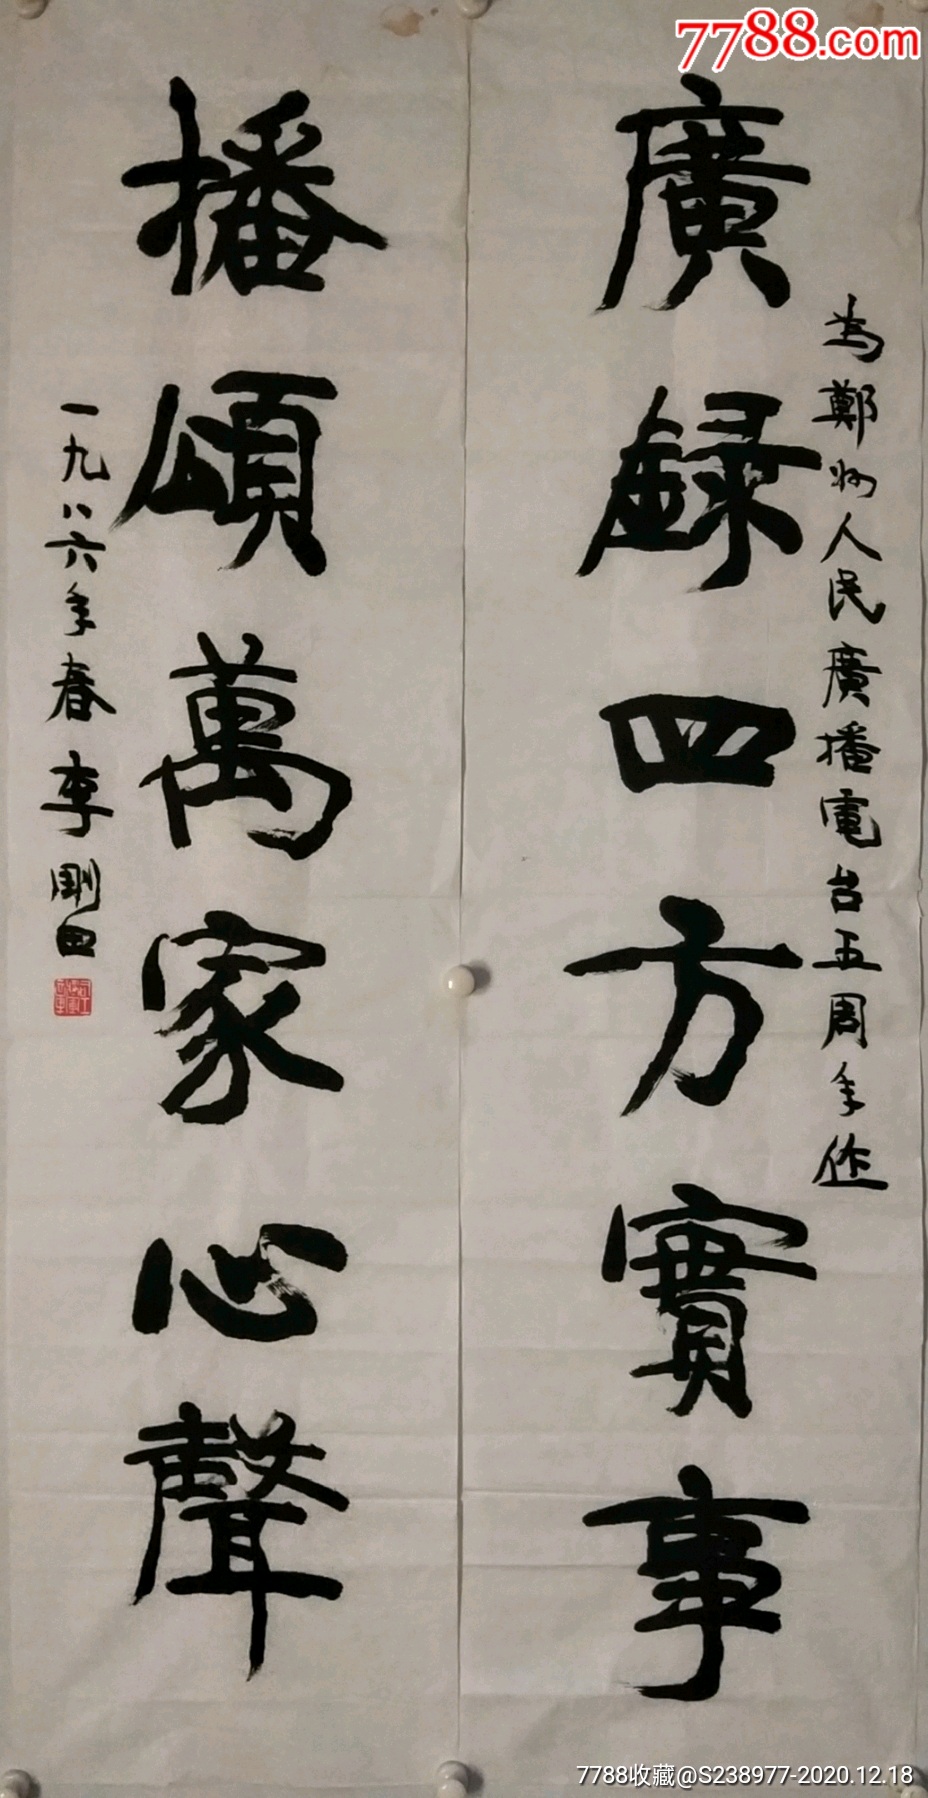 7788.com
為鄭州人民廣播電台五周年作
廣録四方實事
播頌萬家心聲
一九八六年春李剛田
7788收藏@S238977-2020.12.18